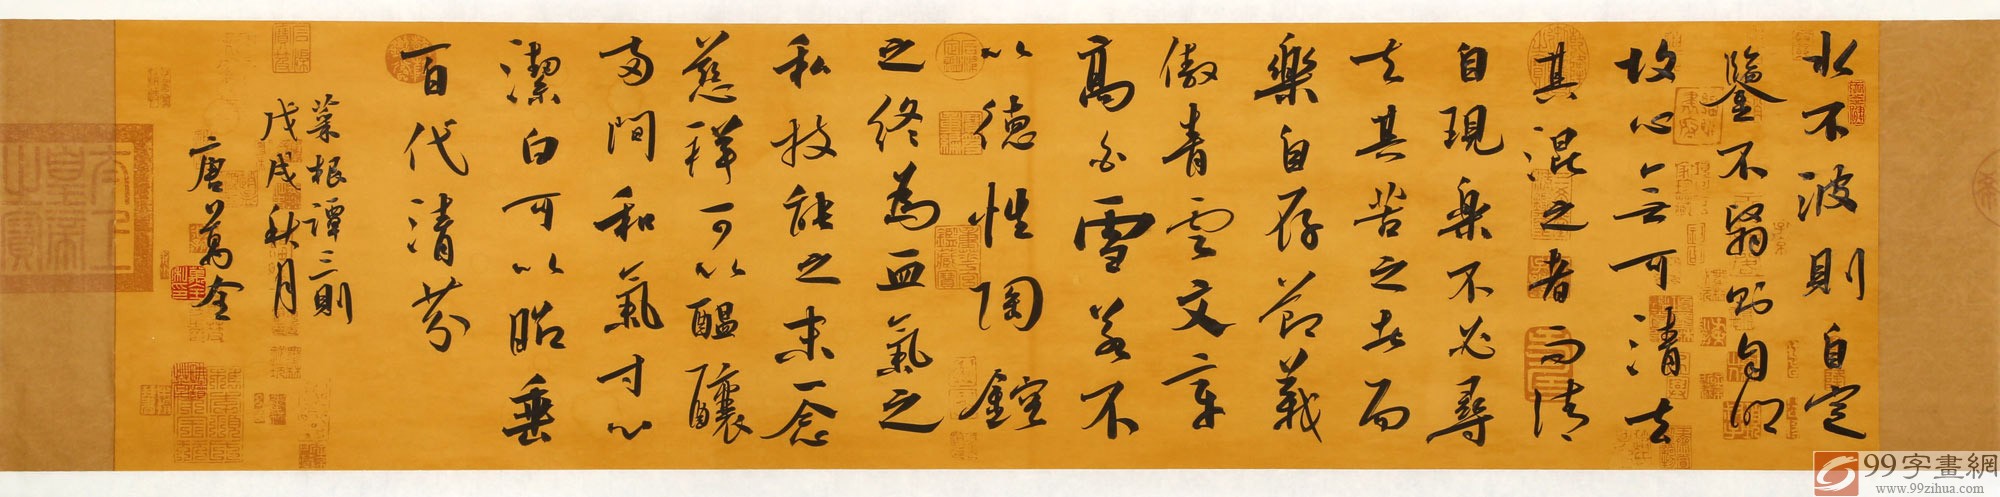 水不波則自定
鑒不翳則自明
故心無可清去
其混之者而清
自現樂不必尋
去其苦之者而
樂自存節義
傲青雲文章
高白雪若不
以德性陶鎔
之終為血氣之
私技能之末一念
慈祥可以醞釀
兩間和氣寸心
潔白可以昭垂
百代清芬
菜根譚三則
戊戌秋月
唐萬全
太上
皇帝
之寶
99字畫網
www.99zihua.com